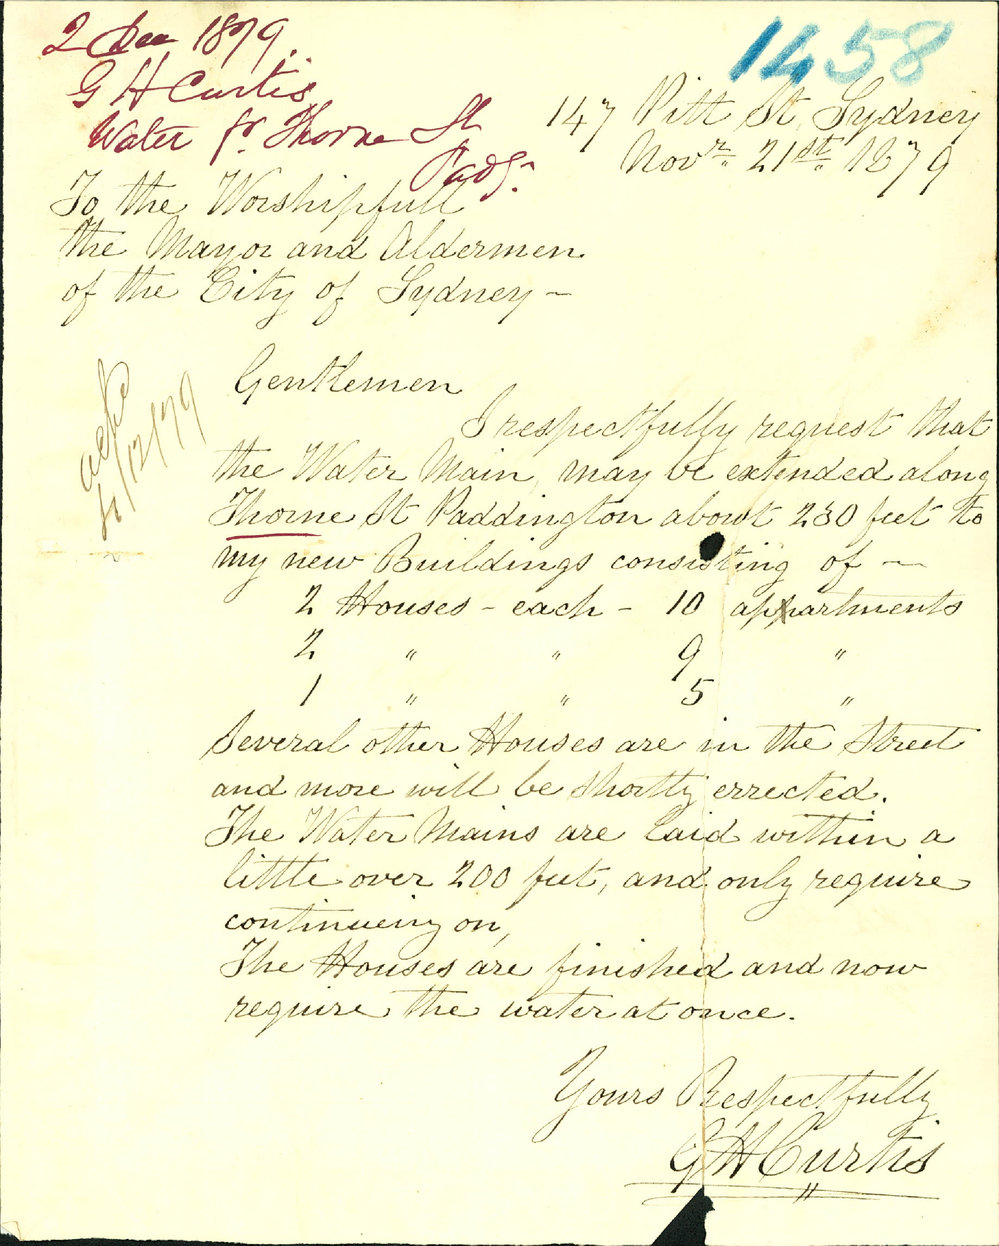 2 Dec 1879.
G H Curtis
Water fr. Thorne St
Padg.
1458
147 Pitt St, Sydney
Novr. 21st. 1879
To the Worshipfull
the Mayor and Aldermen
of the City of Sydney -
4/12/79
Gentlemen
I respectfully request that
the Water Main, may be extended along
Thorne St Paddington about 230 feet to
my new Buildings consisting of -
2 Houses - each - 10 appartments
2 " " 9 "
1 " " 5 "
Several other Houses are in the Street
and more will be shortly errected.
The Water Mains are Laid within a
little over 200 feet, and only require
continueing on,
The Houses are finished and now
require the water at once.
Yours Respectfully
G H Curtis